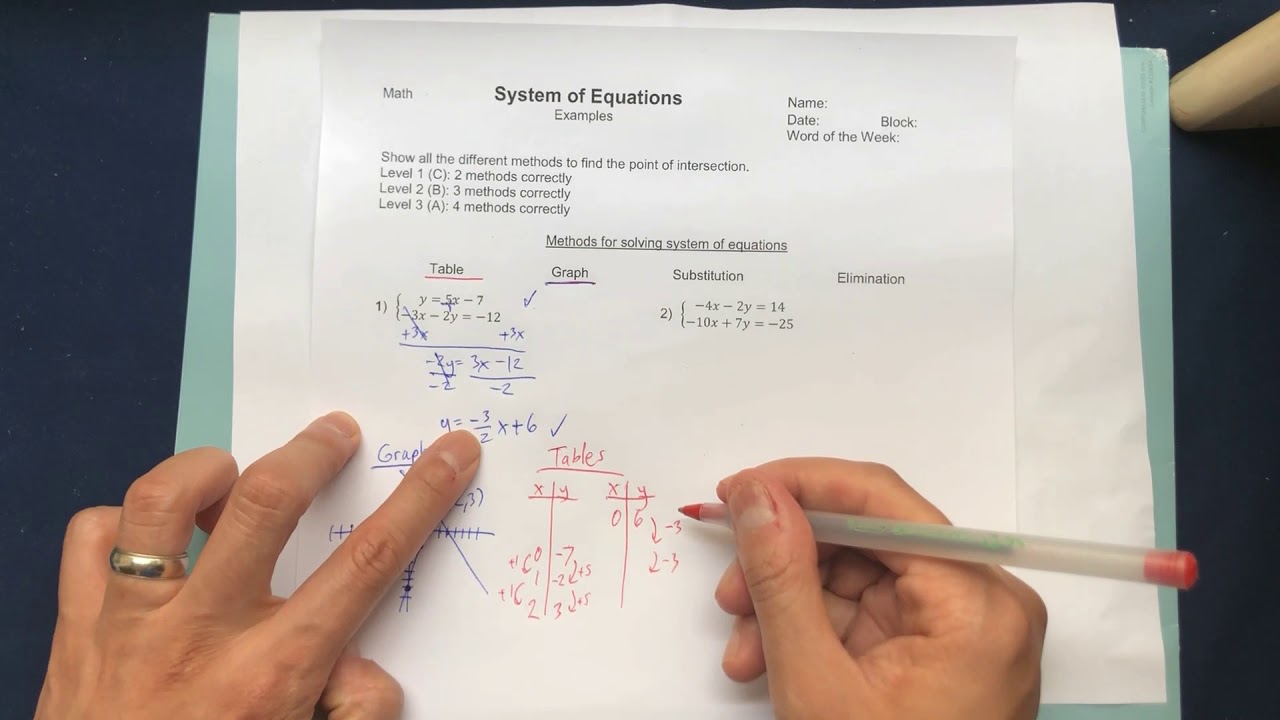 Math
System of Equations
Examples
Name:
Date: Block:
Word of the Week:
Show all the different methods to find the point of intersection.
Level 1 (C): 2 methods correctly
Level 2 (B): 3 methods correctly
Level 3 (A): 4 methods correctly
Methods for solving system of equations
Table Graph Substitution Elimination
1) { y = 5x − 7 ✓
−3x − 2y = −12
+3x +3x
-2y = 3x -12
-2 -2
y = -3/2 x + 6 ✓
2) { −4x − 2y = 14
−10x + 7y = −25
Grap
2,3)
Tables
x | y x | y
0 6
-3
+1 0 -7 -3
1 -2 +5
+1 2 3 +5